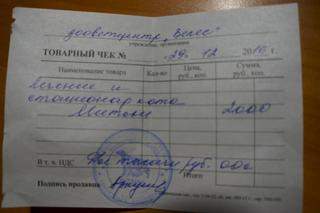 зооветцентр „Велес"
учреждение, организация
ТОВАРНЫЙ ЧЕК № 29. 12 2010 г.
Наименование товара Кол-во Цена, руб., коп. Сумма, руб., коп.
Лечение и
стационар кота 2000
В т. ч. НДС Две тысячи руб. 00к
Итого:
Подпись продавца